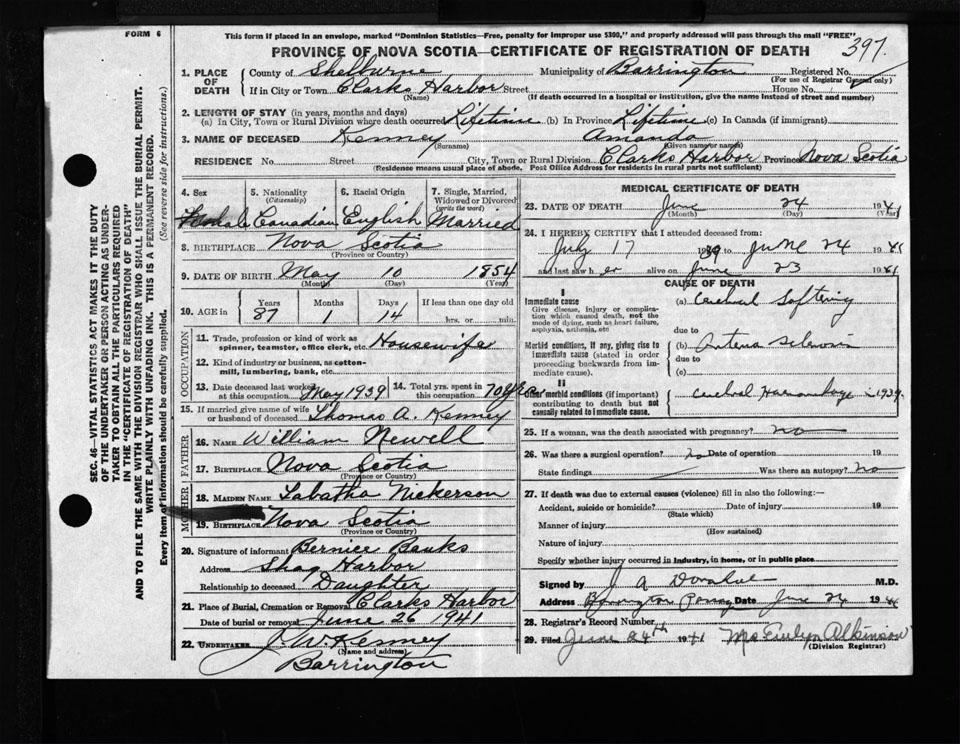 FORM 6
This form if placed in an envelope, marked "Dominion Statistics—Free, penalty for improper use $300," and properly addressed will pass through the mail "FREE"
PROVINCE OF NOVA SCOTIA—CERTIFICATE OF REGISTRATION OF DEATH
397
1. PLACE OF DEATH
County of Shelburne Municipality of Barrington Registered No.
(For use of Registrar General only)
If in City or Town Clarks Harbor Street House No.
(Name) (If death occurred in a hospital or institution, give the name instead of street and number)
2. LENGTH OF STAY (in years, months and days)
(a) In City, Town or Rural Division where death occurred Lifetime (b) In Province Lifetime (c) In Canada (if immigrant)
3. NAME OF DECEASED Kenney Amanda
(Surname) (Given name or names)
RESIDENCE No. Street City, Town or Rural Division Clarks Harbor Province Nova Scotia
(Residence means usual place of abode. Post Office Address for residents in rural parts not sufficient)
4. Sex 5. Nationality (Citizenship) 6. Racial Origin 7. Single, Married, Widowed or Divorced (write the word)
Female Canadian English Married
8. BIRTHPLACE Nova Scotia
(Province or Country)
9. DATE OF BIRTH May 10 1854
(Month) (Day) (Year)
10. AGE in Years Months Days If less than one day old
87 1 14 hrs. or min.
OCCUPATION
11. Trade, profession or kind of work as spinner, teamster, office clerk, etc. Housewife
12. Kind of industry or business, as cotton-mill, lumbering, bank, etc.
13. Date deceased last worked at this occupation May 1939 14. Total yrs. spent in this occupation 70 yrs
15. If married give name of wife or husband of deceased Thomas A. Kenney
FATHER
16. NAME William Newell
17. BIRTHPLACE Nova Scotia
(Province or Country)
MOTHER
18. MAIDEN NAME Tabatha Nickerson
19. BIRTHPLACE Nova Scotia
(Province or Country)
20. Signature of informant Bernice Banks
Address Shag Harbor
Relationship to deceased Daughter
21. Place of Burial, Cremation or Removal Clarks Harbor
Date of burial or removal June 26 1941
22. UNDERTAKER J. W. Kenney
(Name and address)
Barrington
MEDICAL CERTIFICATE OF DEATH
23. DATE OF DEATH June 24 1941
(Month) (Day) (Year)
24. I HEREBY CERTIFY that I attended deceased from:
July 17 1939 to June 24 1941
and last saw her alive on June 23 1941
CAUSE OF DEATH
I
Immediate cause (a) Cerebral Softening
Give disease, injury or complication which caused death, not the mode of dying, such as heart failure, asphyxia, asthenia, etc
due to
Morbid conditions, if any, giving rise to immediate cause (stated in order proceeding backwards from immediate cause). (b)
due to
(c)
II
Other morbid conditions (if important) contributing to death but not causally related to immediate cause. Cerebral 1939.
25. If a woman, was the death associated with pregnancy? no
26. Was there a surgical operation? no Date of operation 19
State findings Was there an autopsy? no
27. If death was due to external causes (violence) fill in also the following:—
Accident, suicide or homicide? Date of injury 19
(State which)
Manner of injury
(How sustained)
Nature of injury
Specify whether injury occurred in industry, in home, or in public place
Signed by J A M.D.
Address Barrington Date June 24 1941
28. Registrar's Record Number
29. Filed June 24th 1941 Mrs Evelyn Atkinson
(Division Registrar)
SEC. 46—VITAL STATISTICS ACT MAKES IT THE DUTY
OF THE UNDERTAKER OR PERSON ACTING AS UNDER-
TAKER TO OBTAIN ALL THE PARTICULARS REQUIRED
IN THE "CERTIFICATE OF REGISTRATION OF DEATH"
AND TO FILE THE SAME WITH THE DIVISION REGISTRAR WHO SHALL ISSUE THE BURIAL PERMIT.
WRITE PLAINLY WITH UNFADING INK. THIS IS A PERMANENT RECORD.
Every item of information should be carefully supplied. (See reverse side for instructions.)